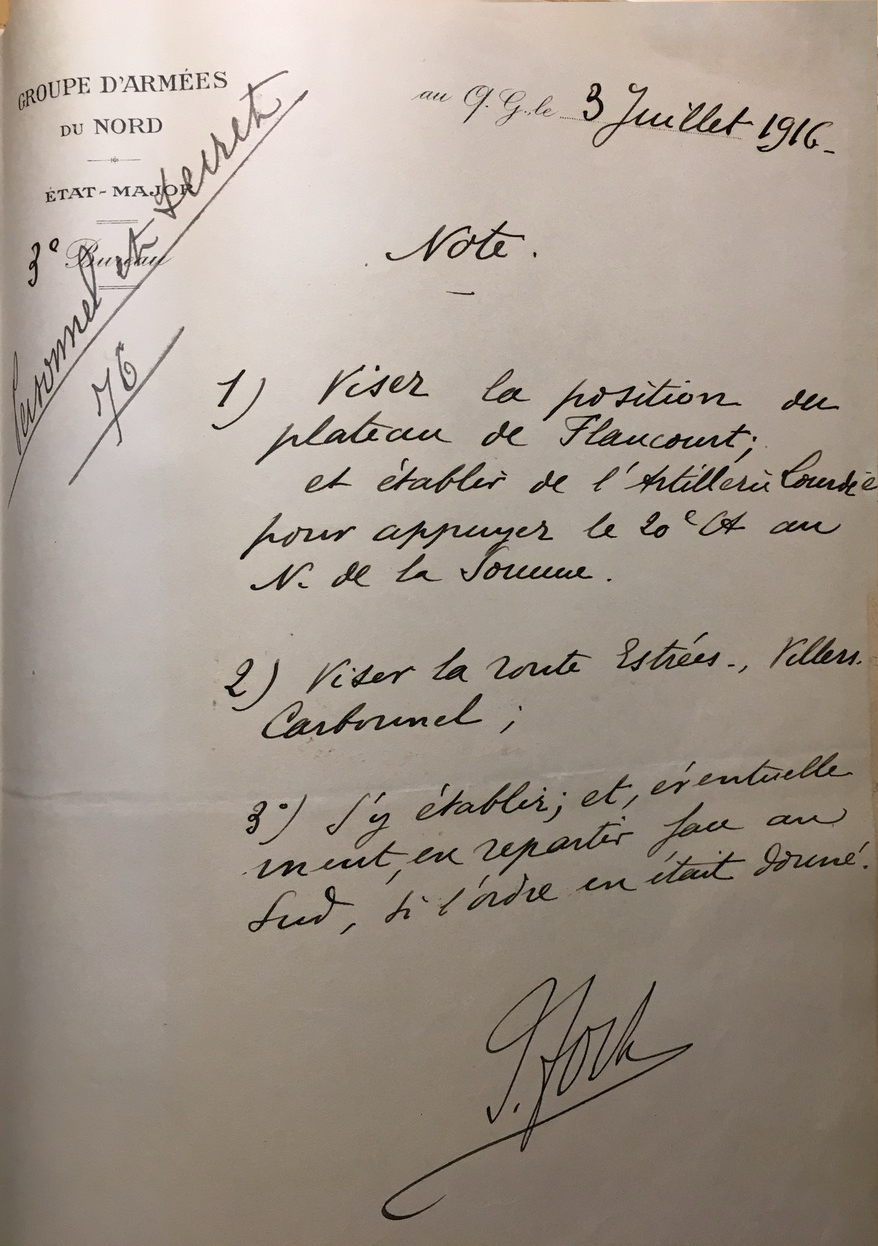 GROUPE D'ARMÉES
DU NORD
ÉTAT-MAJOR
3e Bureau
Personnel et Secret
76
au Q.G. le 3 Juillet 1916.
Note.
1) Viser la position du
plateau de Flaucourt;
et établir de l'Artillerie Lourde
pour appuyer le 20e CA au
N. de la Somme.
2) Viser la route Estrées-, Villers.
Carbonnel ;
3°) S'y établir; et, éventuelle
ment, en repartir face au
Sud, si l'ordre en était donné.
F. Foch